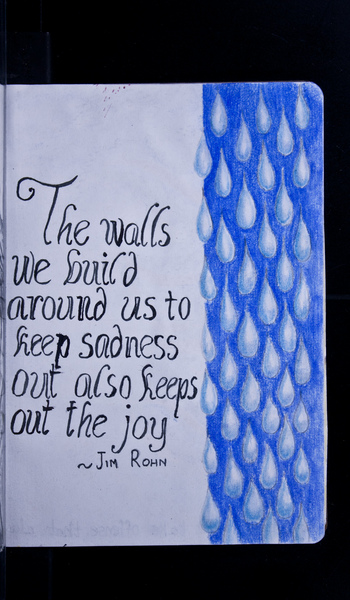 The walls
we build
around us to
keep sadness
out also keeps
out the joy
~Jim Rohn